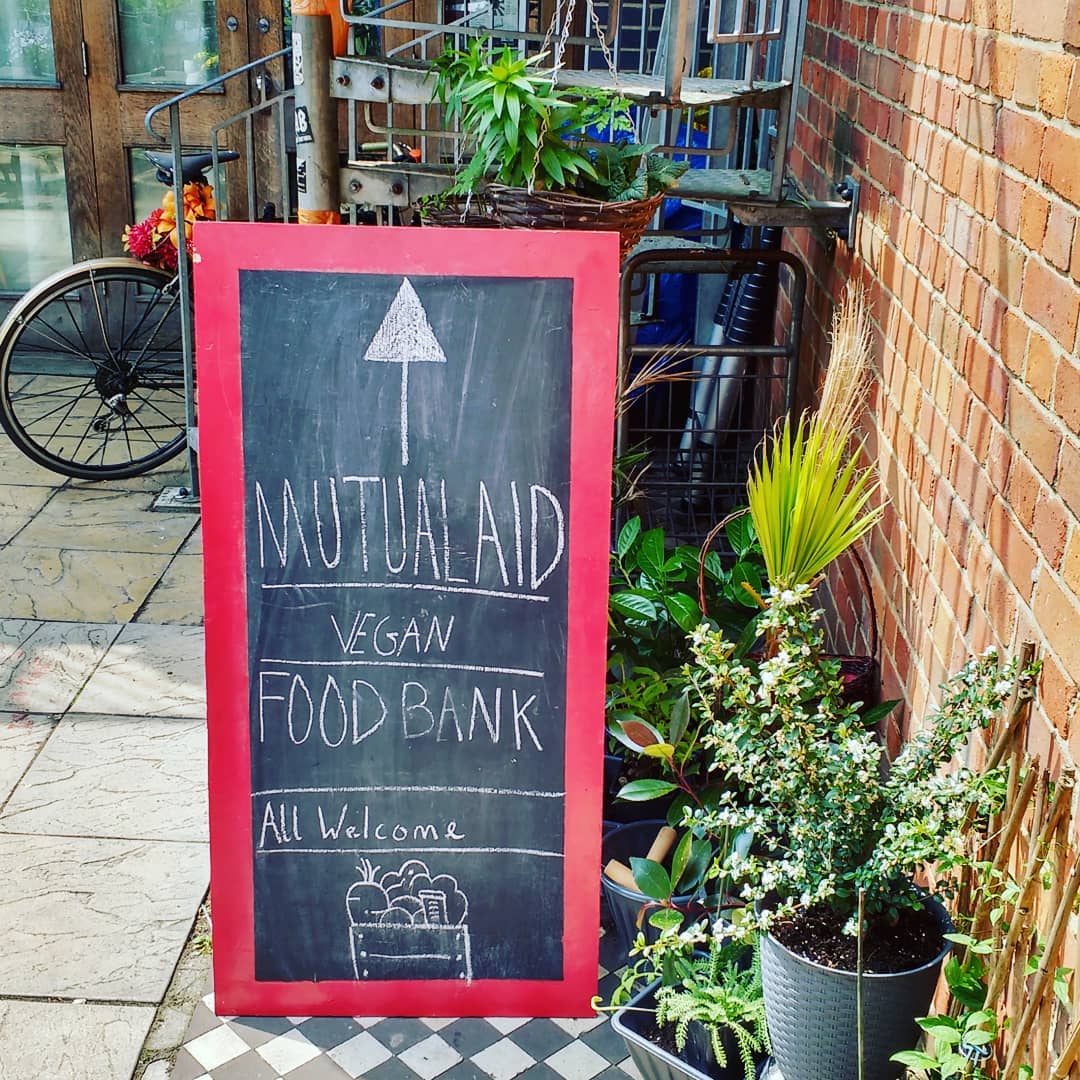 MUTUAL AID
VEGAN
FOOD BANK
All Welcome